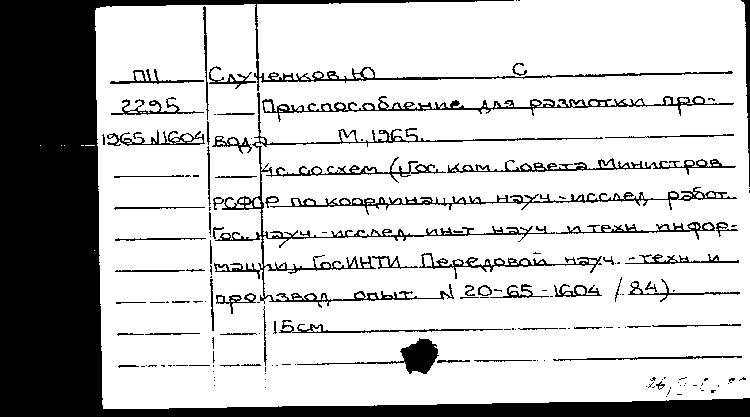 ПII Слученков, Ю С
2295 Приспособление для размотки про-
1965 N1604 вода М., 1965.
4с. со схем (Гос. ком. Совета Министров
РСФСР по координации науч.-исслед. работ.
Гос. науч.-исслед. ин-т науч. и техн. инфор-
мации, ГосИНТИ. Передовой науч.-техн. и
производ. опыт. N 20-65-1604 / 84).
15см